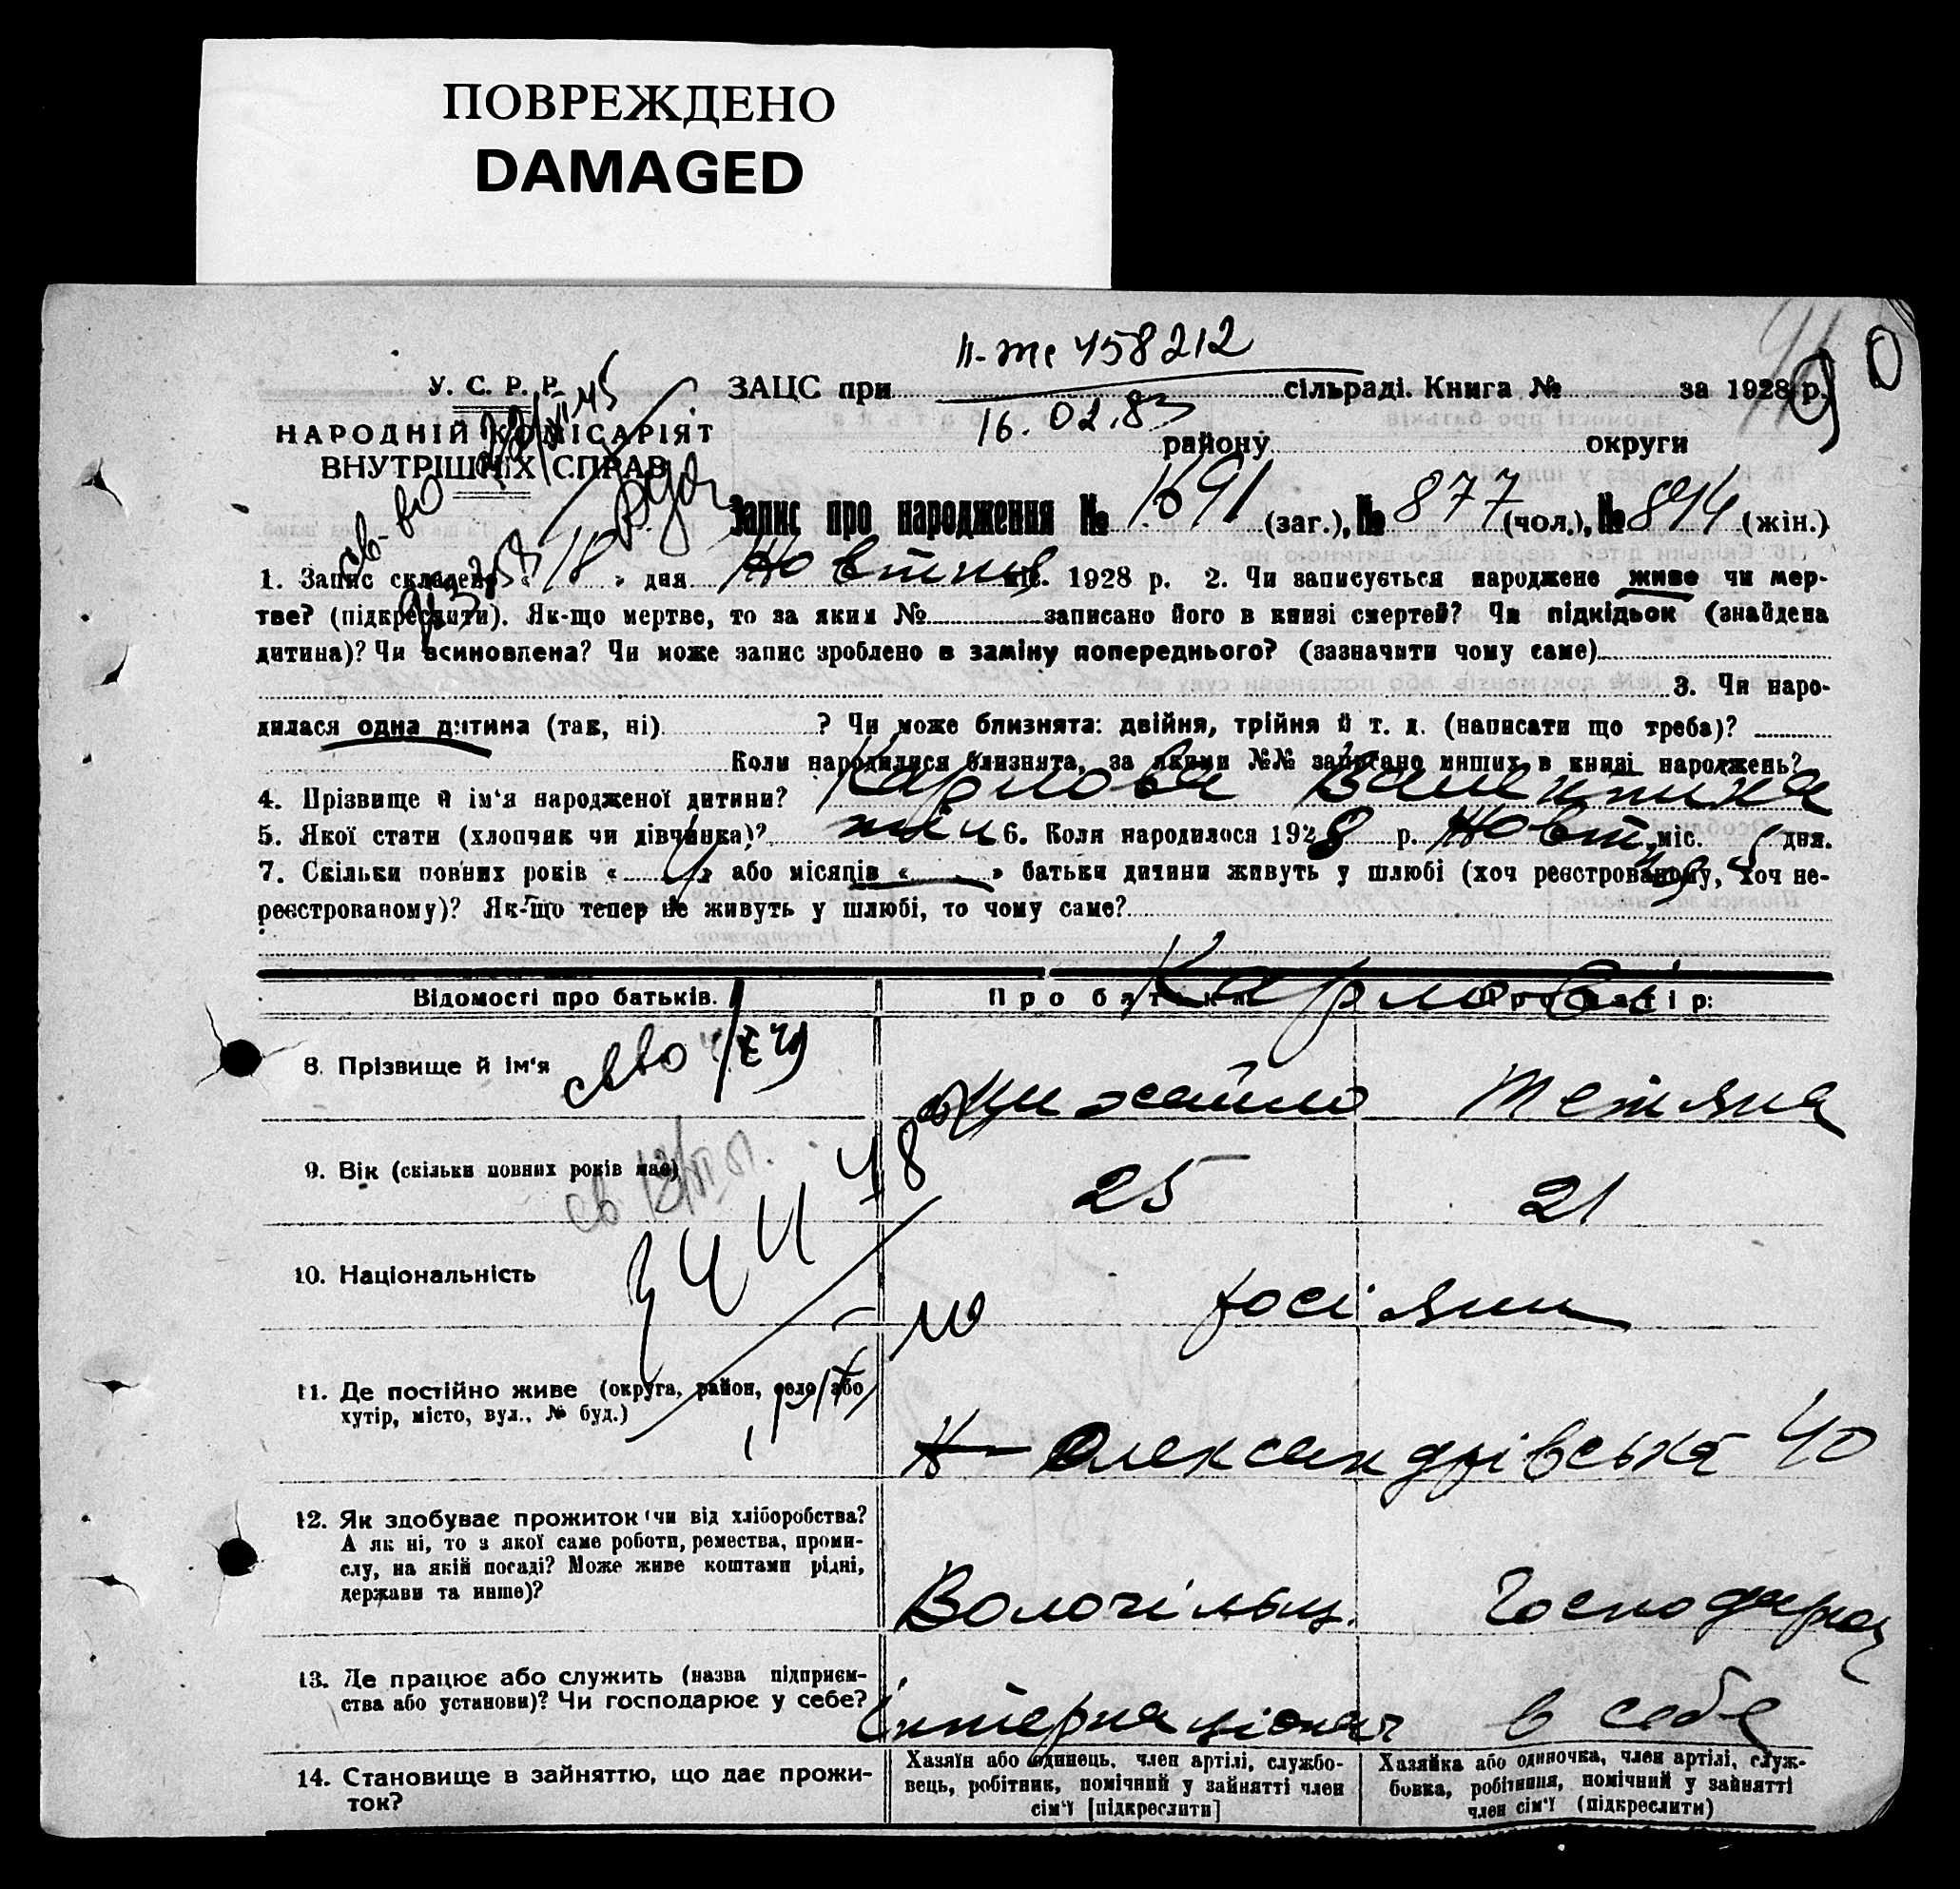 ПОВРЕЖДЕНО
DAMAGED
II-ЖС 458212
У. С. Р. Р. ЗАЦС при сільраді. Книга № за 1928 р.
16.02.83
НАРОДНІЙ КОМІСАРІЯТ району округи
ВНУТРІШНІХ СПРАВ
Запис про народження № 1691 (заг.), № 877 (чол.), № 814 (жін.)
1. Запис складено « 18 » дня Жовтня міс. 1928 р. 2. Чи записується народжене живе чи мер-
тве? (підкреслити). Як-що мертве, то за яким № записано його в книзі смертей? Чи підкідьок (знайдена
дитина)? Чи всиновлена? Чи може запис зроблено в заміну попереднього? (зазначити чому саме)
3. Чи наро-
дилася одна дитина (так, ні) ? Чи може близнята: двійня, трійня й т. д. (написати що треба)?
Коли народилися близнята, за якими №№ записано инших в книзі народжень?
4. Прізвище й ім'я народженої дитини? Карлова Валентина
5. Якої стати (хлопчик чи дівчинка)? жін 6. Коли народилося 1928 р. Жовт. міс. дня.
7. Скільки повних років « » або місяців « » батьки дитини живуть у шлюбі (хоч реєстрованому, хоч не-
реєстрованому)? Як-що тепер не живуть у шлюбі, то чому саме?
Відомості про батьків. Про батька: Про матір:
Карлови
8. Прізвище й ім'я Михайло Тетяна
9. Вік (скільки повних років має) 25 21
10. Національність росіяни
11. Де постійно живе (округа, район, село або
хутір, місто, вул., № буд.)
Н-Олександрівська 40
12. Як здобуває прожиток чи від хліборобства?
А як ні, то з якої саме роботи, ремества, проми-
слу, на якій посаді? Може живе коштами рідні,
держави та инше)?
Волочільщ. Господарка
13. Де працює або служить (назва підприєм-
ства або установи)? Чи господарює у себе?
Інтернаціонал в себе
14. Становище в зайняттю, що дає прожи-
ток?
Хазяїн або одинець, член артілі, службо-
вець, робітник, помічний у зайнятті член
сім'ї [підкреслити]
Хазяйка або одиночка, член артілі, служ-
бовка, робітниця, помічний у зайнятті
член сім'ї (підкреслити)